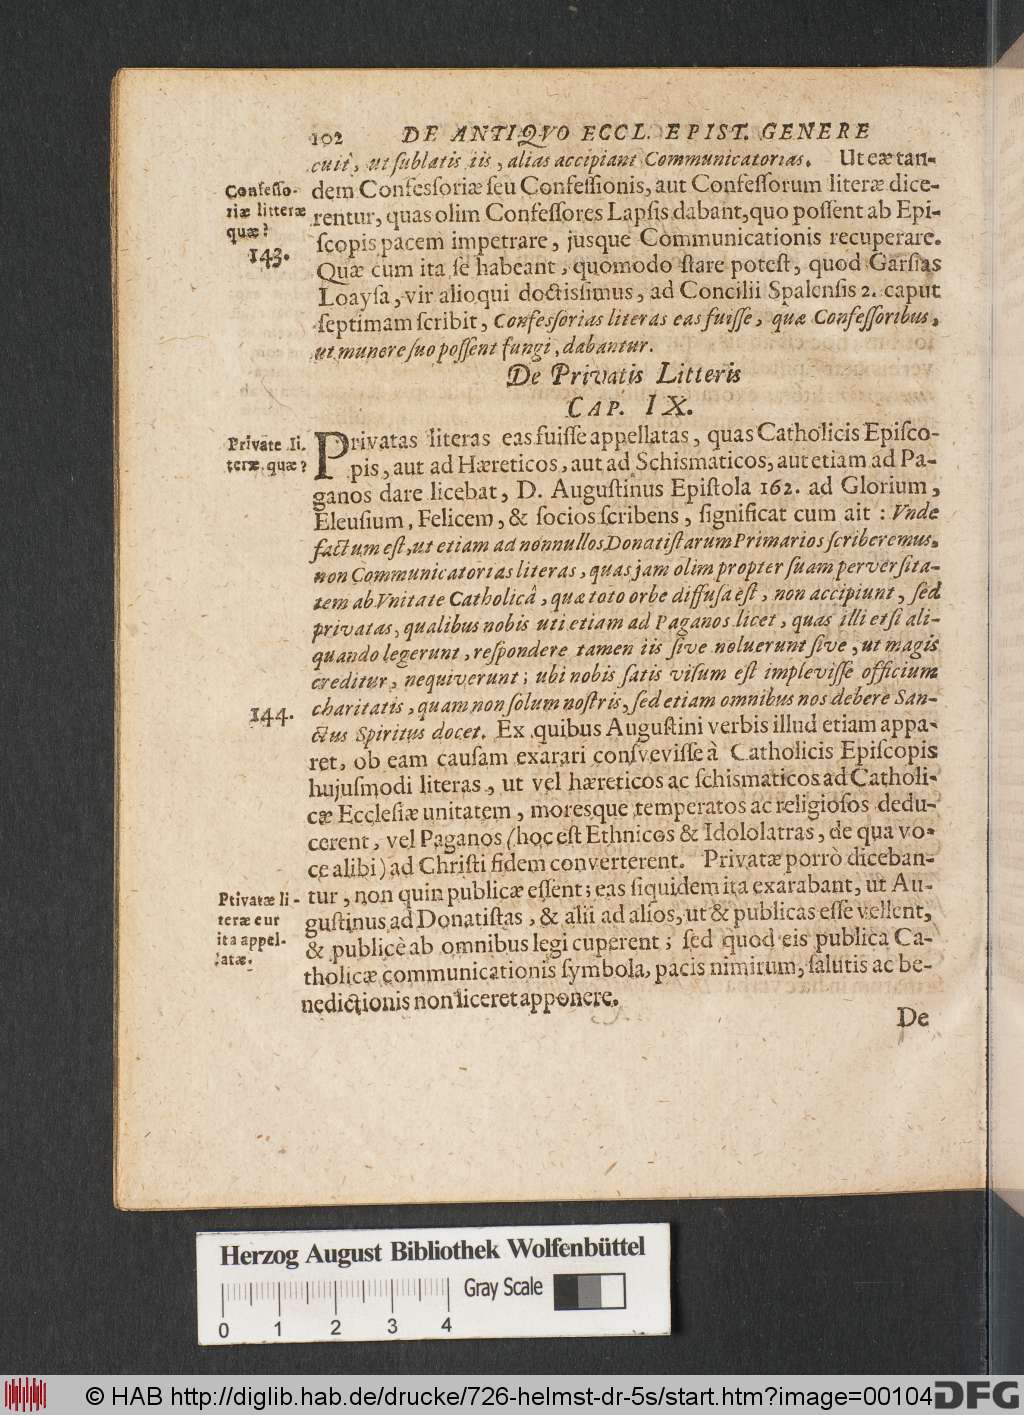 102 DE ANTIQVO ECCL. EPIST. GENERE
cuit, ut ſublatis iis, alias accipiant Communicatorias. Ut eæ tan-
dem Confeſſoriæ ſeu Confeſſionis, aut Confeſſorum literæ dice-
rentur, quas olim Confeſſores Lapſis dabant, quo poſſent ab Epi-
ſcopis pacem impetrare, jusque Communicationis recuperare.
Quæ cum ita ſe habeant, quomodo ſtare poteſt, quod Garſias
Loayſa, vir alioqui doctiſſimus, ad Concilii Spalenſis 2. caput
ſeptimam ſcribit, Confeſſorias literas eas fuiſſe, quæ Confeſſoribus,
ut munere ſuo poſſent fungi, dabantur.
Confeſſo-
riæ litteræ
quæ?
143.
De Privatis Litteris
CAP. IX.
Private li.
teræ quæ?
Privatas literas eas fuiſſe appellatas, quas Catholicis Epiſco-
pis, aut ad Hæreticos, aut ad Schismaticos, aut etiam ad Pa-
ganos dare licebat, D. Auguſtinus Epiſtola 162. ad Glorium,
Eleuſium, Felicem, & ſocios ſcribens, ſignificat cum ait: Vnde
factum eſt, ut etiam ad nonnullos Donatiſtarum Primarios ſcriberemus,
non Communicatorias literas, quas jam olim propter ſuam perverſita-
tem ab Vnitate Catholicâ, quæ toto orbe diffuſa eſt, non accipiunt, ſed
privatas, qualibus nobis uti etiam ad Paganos licet, quas illi etſi ali-
quando legerunt, reſpondere tamen iis ſive noluerunt ſive, ut magis
creditur, nequiverunt; ubi nobis ſatis viſum eſt impleviſſe officium
charitatis, quam non ſolum noſtris, ſed etiam omnibus nos debere San-
ctus Spiritus docet. Ex quibus Auguſtini verbis illud etiam appa-
ret, ob eam cauſam exarari conſveviſſe à Catholicis Epiſcopis
hujuſmodi literas, ut vel hæreticos ac ſchismaticos ad Catholi-
cæ Eccleſiæ unitatem, moresque temperatos ac religioſos dedu-
cerent, vel Paganos (hoc eſt Ethnicos & Idololatras, de qua vo-
ce alibi) ad Chriſti fidem converterent. Privatæ porrò diceban-
tur, non quin publicæ eſſent; eas ſiquidem ita exarabant, ut Au-
guſtinus ad Donatiſtas, & alii ad alios, ut & publicas eſſe vellent,
& publicè ab omnibus legi cuperent; ſed quod eis publica Ca-
tholicæ communicationis ſymbola, pacis nimirum, ſalutis ac be-
nedictionis non liceret apponere.
144.
Ptivatæ li-
teræ cur
ita appel-
latæ.
De
Herzog August Bibliothek Wolfenbüttel
Gray Scale
0 1 2 3 4
© HAB http://diglib.hab.de/drucke/726-helmst-dr-5s/start.htm?image=00104
DFG